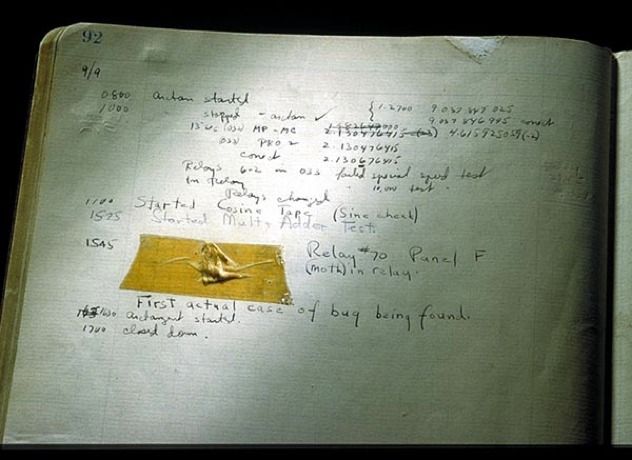 92
9/9
0800 antan started
1000 " stopped - antan ✓ { 1.2700 9.037 847 025
9.037 846 995 correct
13"uc (032) MP - MC 2.130476415 (-3) 4.615925059(-2)
(033) PRO 2 2.130476415
correct 2.130676415
Relays 6-2 in 033 failed special speed test
in Relay " 10,000 test.
Relays changed
1100 Started Cosine Tape (Sine check)
1525 Started Mult+Adder Test.
1545 Relay #70 Panel F
(moth) in relay.
First actual case of bug being found.
1630 antangent started.
1700 closed down.